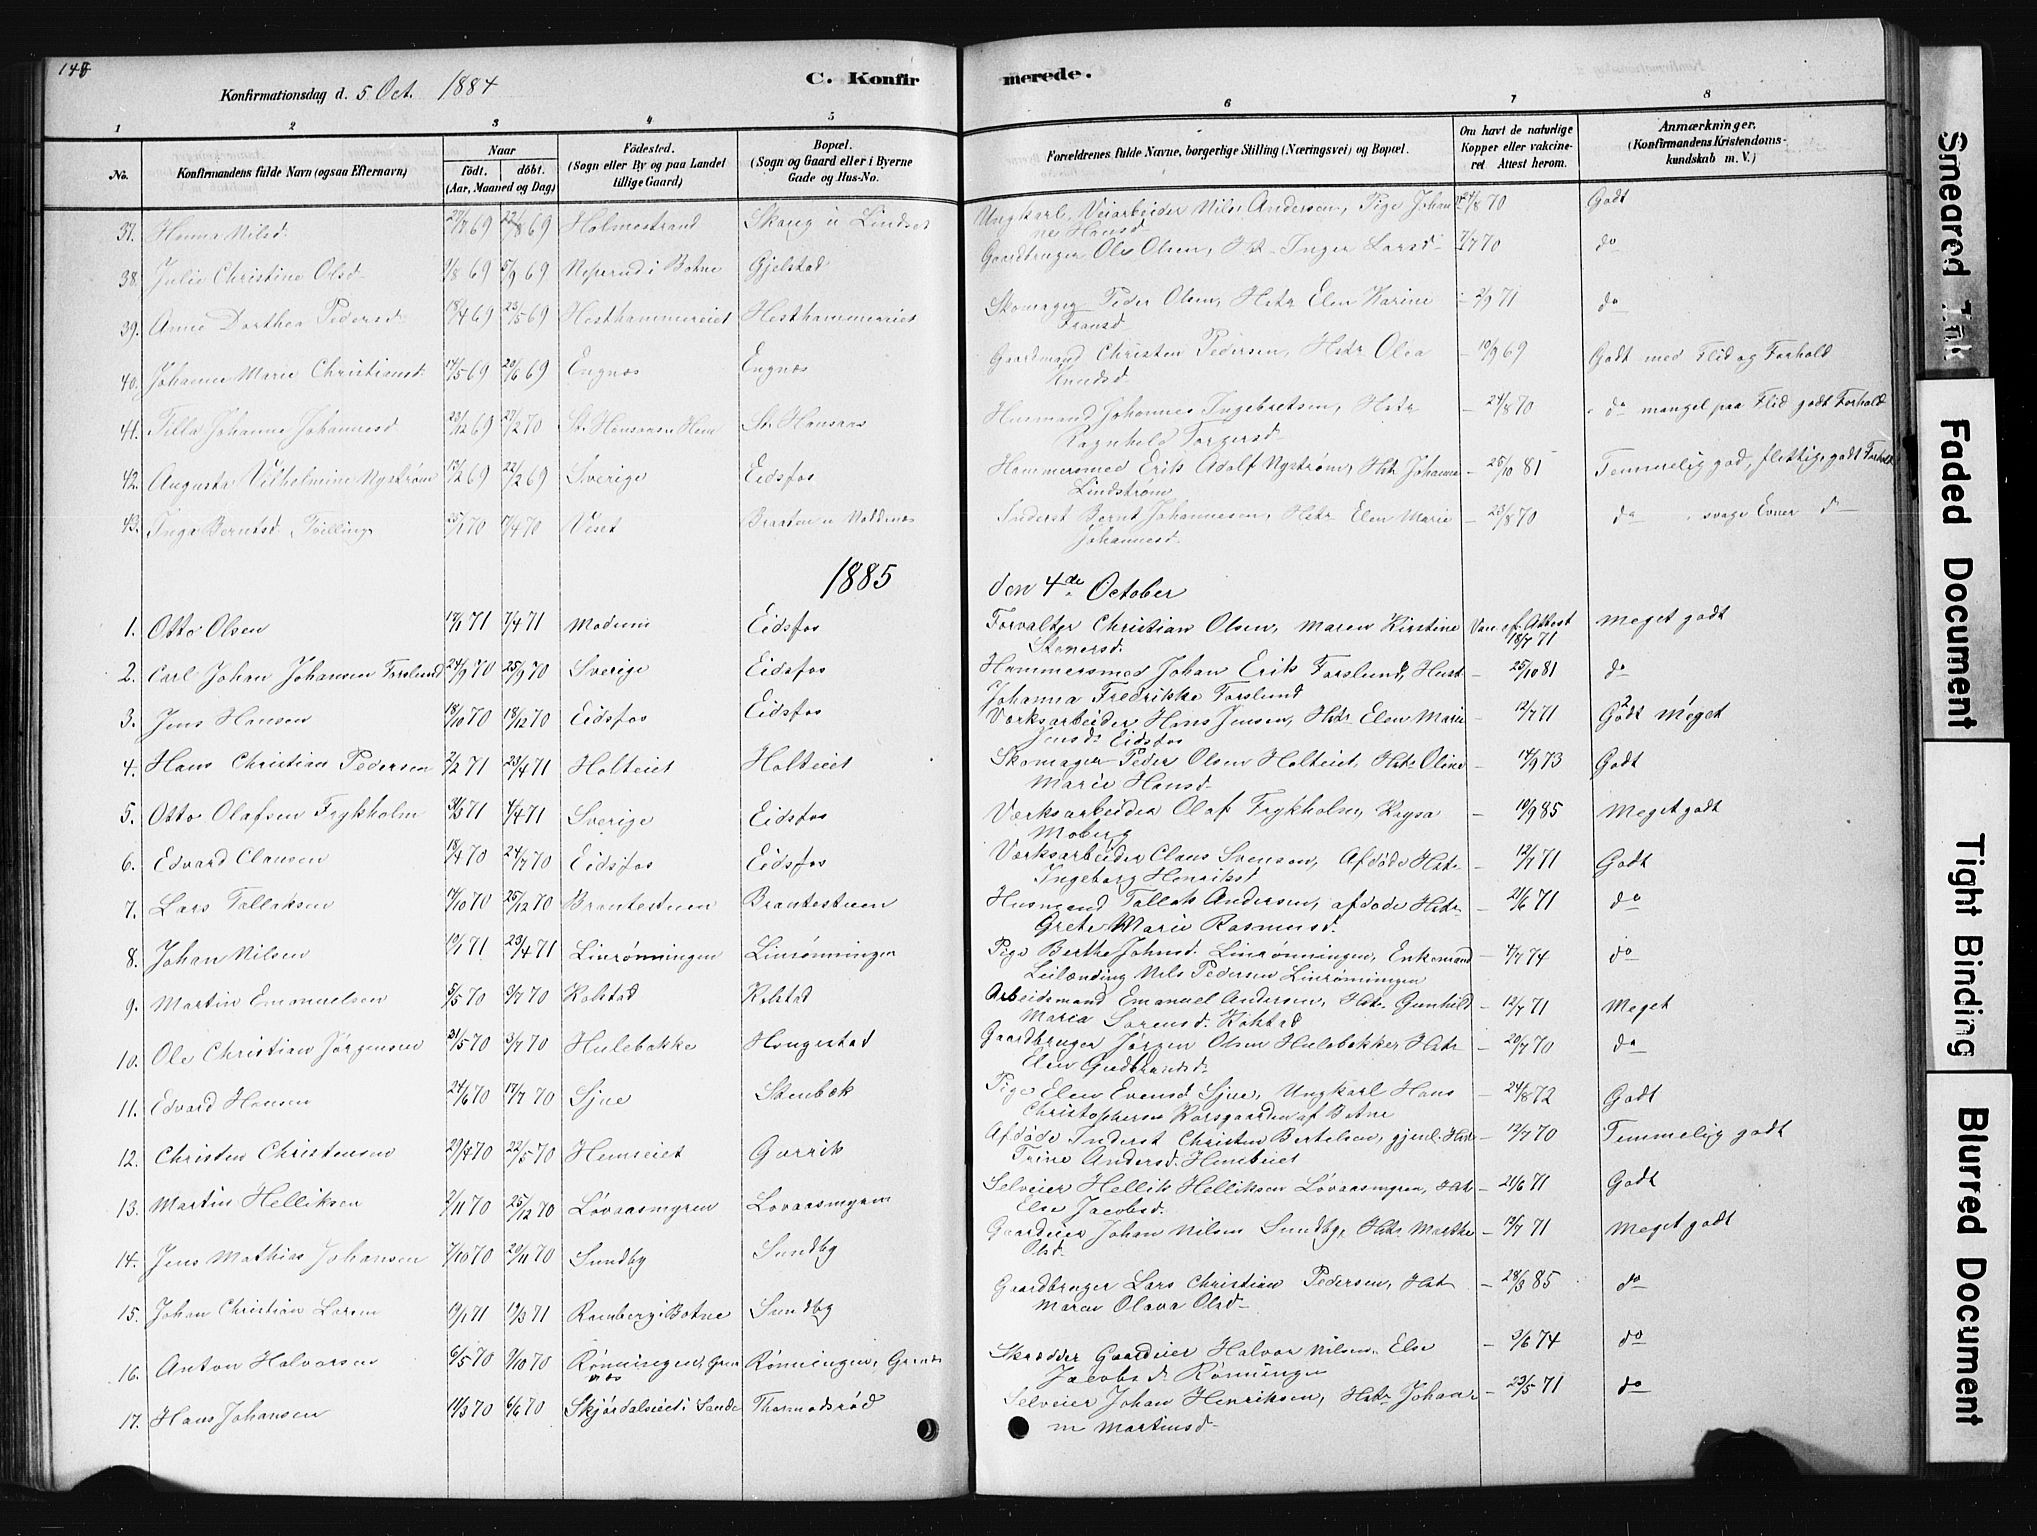 148
Konfirmationsdag d. 5 Oct. 1884
C. Konfir merede.
1 2 3 4 5 6 7 8
No.
Konfirmandens fulde Navn (ogsaa Efternavn)
Naar
født. døbt.
(Aar, Maaned og Dag)
Fødested.
(Sogn eller By og paa Landet
tillige Gaard)
Bopæl.
(Sogn og Gaard eller i Byerne
Gade og Hus-No.
Forældrenes fulde Navne, borgerlige Stilling (Næringsvei) og Bopæl.
Om havt de naturlige
Kopper eller vakcine-
ret Attest herom.
Anmærkninger.
(Konfirmandens Kristendoms-
kundskab m. V.)
37. Hanna Nilsd. 27/7 69 22/8 69 Holmestrand Ungkarl, Veiarbeider Nils Andersen, Pige Johan 24/8 70 Godt
ne Hansd
38. Julie Christine Olsd 1/8 69 5/9 69 Neperud i Botne Gjelstad Gaardbruger Ole Olsen, Hst. Inger Larsd 7/7 70 do
39. Anne Dorthea Pedersd 18/4 69 23/5 69 Hesthammereiet Hesthammereiet Skomager Peder Olsen, Hstr Elen Karine - 2/9 71 do
Fransd
40. Johanne Marie Christiansd. 17/5 69 20/6 69 Engnæs Engnæs Gaardmand Christen Pedersen, Hstr Olea - 10/9 69 Godt med Flid og Forhold
Knudsd
41. Tilla Johanne Johannesd 23/12 69 27/2 70 St. Hansaas Husmand Johannes Ingebretsen, Hstr - 24/8 70 do mangel paa Flid godt Forhold
Ragnhild Torgersd
42. Augusta Vilhelmine Nystrøm 13/2 69 22/2 69 Sverige Eidsfos Hammersmed Erik Adolf Nystrøm, Hstr Johanna - 25/10 81 Temmelig god, flittig, godt Forhold
Lindstrøm
43. Inga Berntsd Tvilling 25/1 70 17/4 70 Viset Inderst Bernt Johannesen, Hstr Elen Marie - 23/8 70 do svage Evner do
Johannesd.
1885 den 4de October
1. Otto Olsen 17/1 71 7/4 71 Modum Eidsfos Forvalter Christian Olsen, Maren Kirstine Vac. af. Attest Meget godt
Stenersd. 18/7 71
2. Carl Johan Johansen Forslund 24/9 70 25/9 70 Sverige Eidsfos Hammersmed Johan Erik Forslund, Hust - 25/10 81 do
Johanna Fredrikke Forslund
3. Jens Hansen 18/10 70 18/12 70 Eidsfos Eidsfos Værksarbeider Hans Jensen, Hstr Elen Marie - 12/7 71 Godt Meget
Jensd. Eidsfos
4. Hans Christian Pedersen 2/2 71 23/4 71 Holteiet Holteiet Skomager Peder Olsen Holteiet, Hstr Oline - 14/9 73 Godt
Marie Hansd.
5. Otto Olafsen Frykholm 31/3 71 4/4 71 Sverige Eidsfos Værksarbeider Olaf Frykholm, Kaysa - 10/9 85 Meget godt
Moberg
6. Edvard Clausen 18/4 70 24/7 70 Eidsfos Eidsfos Værksarbeider Claus Svensen, Afdøde Hstr - 12/7 71 Godt
Ingeborg Henriksd
7. Lars Tollaksen 14/10 70 25/12 70 Brantestuen Brantestuen Husmand Tollak Andersen, afdøde Hstr - 21/6 71 do
Grete Marie Rasmusd.
8. Johan Nilsen 10/1 71 23/4 71 Linrønningen Linrønningen Pige Berthe Johnsd. Linrønningen, Enkemand - 4/7 74 do
Leilænding Nils Pedersen Linrønningen
9. Martin Emanuelsen 5/5 70 3/7 70 Kolstad Kolstad Arbeidsmand Emanuel Andersen, Hstr. Gunhild - 12/7 71 Meget
Maria Sørensd. Kolstad
10. Ole Christian Jørgensen 31/5 70 3/7 70 Hulebakke Hengestad Gaardbruger Jørgen Olsen Hulebakke, Hstr - 20/7 70 do
Elen Gudbrandsd.
11. Edvard Hansen 24/6 70 17/7 70 Sjue Stenbæk Pige Elen Evensd Sjue, Ungkarl Hans - 24/8 72 Godt
Christophersen Korsgaarden af Botne
12. Christen Christensen 29/4 70 22/5 70 Hemseiet Garrik Afdøde Inderst Christen Bertelsen, gjenl. Hstr - 12/7 70 Temmelig godt
Trine Andersd.
13. Martin Helliksen 2/11 70 25/12 70 Løvaasmyren Lovaasmyren Selveier Hellik Helliksen Løvaasmyren, Hstr - 21/6 71 Godt
Else Jacobsd.
14. Jens Mathias Johansen 7/10 70 20/11 70 Sundby Sundby Gaardeier Johan Nilsen Sundby, Hstr Marthe - 12/7 71 Meget godt
Olsd.
15. Johan Christian Larsen 19/1 71 19/3 71 Ramberg i Botne Sundby Gaardbruger Lars Christian Pedersen, Hst - 28/3 85 do
Maren Olava Olsd
16. Anton Halvorsen 6/5 70 9/10 70 Rønningen, Gren Rønningen, Grenæs Skrædder Gaardeier Halvor Nilsen, Else - 3/6 74 do
næs Jacobsd. Rønningen
17. Hans Johansen 11/3 70 6/6 70 Skjørdalseiet i Sande Thormodsrød Selveier Johan Henriksen, Hstr Johan - 23/5 71 do
ne Martinsd
Smeared Ink
Faded Document
Tight Binding
Blurred Document